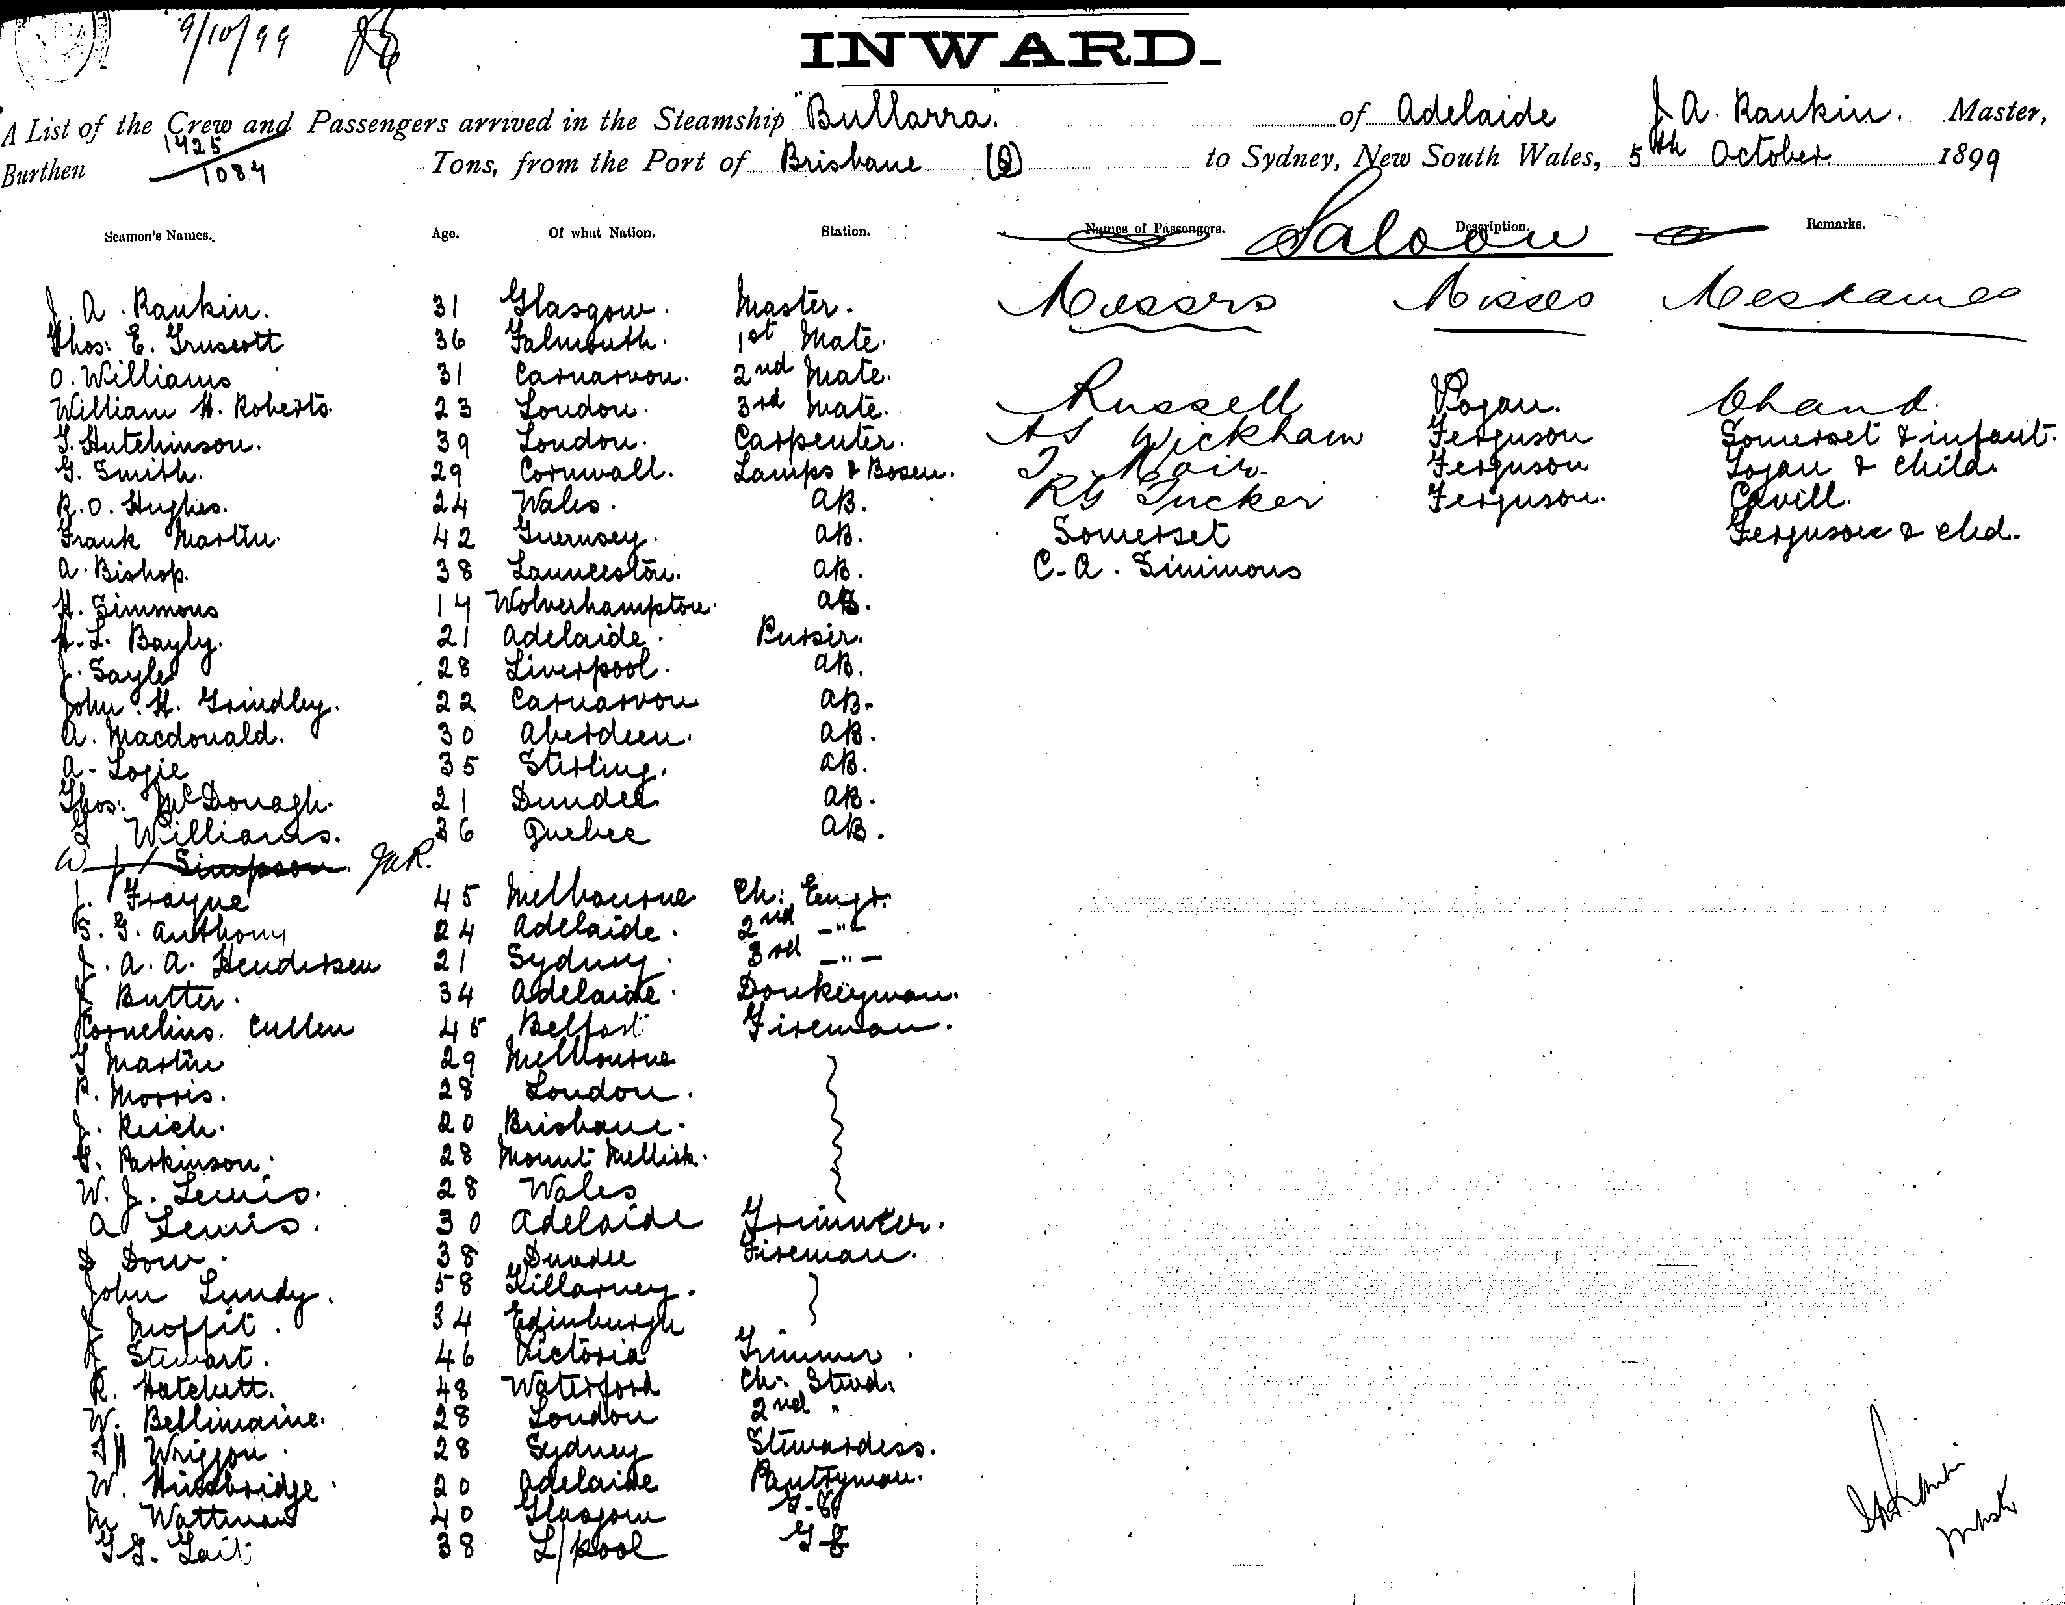 9/10/99
INWARD.
A List of the Crew and Passengers arrived in the Steamship "Bullarra" of Adelaide J. A. Rankin. Master,
Burthen 1425/1084 Tons, from the Port of Brisbane (Q) to Sydney, New South Wales, 5th October 1899
Seamen's Names. Age. Of what Nation. Station. Names of Passengers. Description. Remarks.
Saloon
J. A. Rankin. 31 Glasgow. Master. Messrs Misses Mesdames
Thos: E. Truscott 36 Falmouth. 1st Mate.
O. Williams 31 Carnarvon. 2nd Mate.
William H. Roberts. 23 London. 3rd Mate. Russell Chand.
Hutchinson. 39 London. Carpenter. Wickham Ferguson Somerset & infant.
G. Smith. 29 Cornwall. Lamps & Bosen. Ferguson & Child.
R. O. Hughes. 24 Wales. AB. RG Tucker Ferguson. Cavill.
Frank Martin. 42 Guernsey. AB. Somerset Ferguson & chd.
A. Bishop. 38 Launceston. AB. C. A. Simmons
H. Simmons Wolverhampton. AB.
Bayly. 21 Adelaide. Purser.
J. Sayle 28 Liverpool. AB.
John H. Grindley. 22 Carnarvon AB.
A. Macdonald. 30 Aberdeen. AB.
A. Logie 35 Stirling. AB.
Thos: McDonagh. 21 Dundee AB.
Williams. 36 Quebec AB.
W J Simpson. JAR.
J. Frayne 45 Melbourne Ch: Engr.
S. G. Anthony 24 Adelaide. 2nd -"-
J. A. A. Hendersen 21 Sydney. 3rd -"-
J Butter. 34 Adelaide. Donkeyman.
Cornelius Cullen 45 Belfast Fireman.
Martin 29 Melbourne
P. Morris. 28 London.
J. Reich. 20 Brisbane.
Parkinson. 28 Mount Mellick.
W. J. Lewis. 28 Wales
A Lewis. 30 Adelaide Trimmer.
D Dow. 38 Dundee Fireman.
John Lundy. 58 Killarney.
J Moffit. 34 Edinburgh
J Stewart. 46 Victoria Trimmer.
R. Hatchett. 48 Waterford Ch: Stwd.
W. Bellimaine. 28 London 2nd "
28 Sydney Stewardess.
W. 20 Adelaide Pantryman.
40 Glasgow
38 L/pool